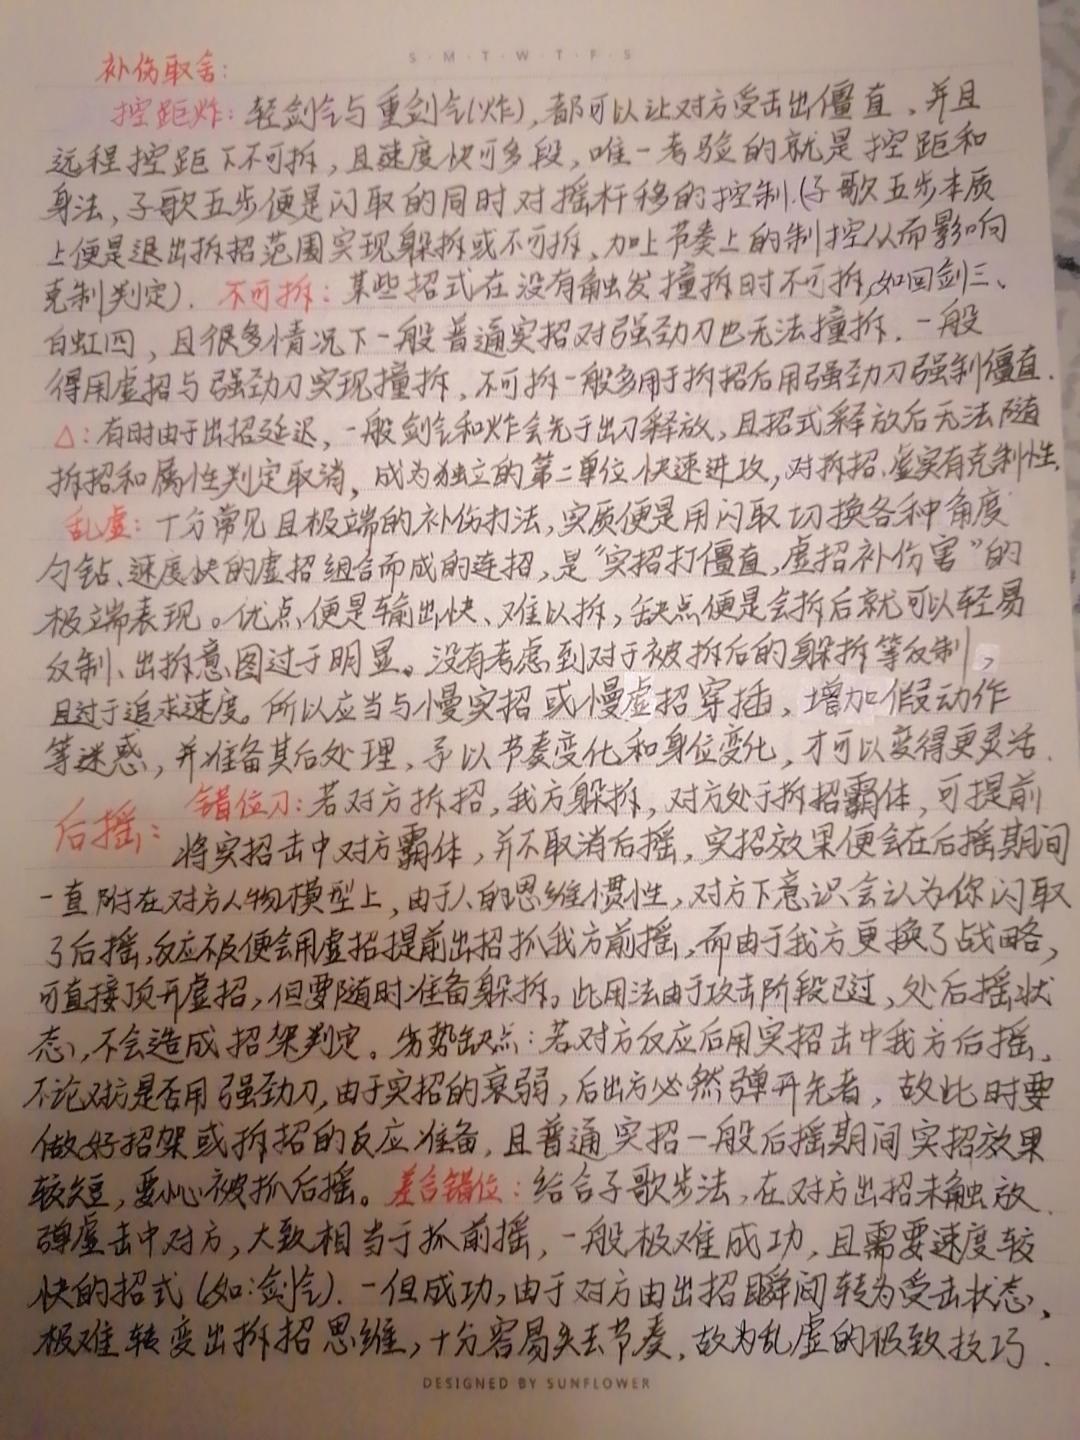 S·M·T·W·T·F·S
补伤取舍：
控距炸：轻剑气与重剑气(炸)，都可以让对方受击出僵直，并且
远程控距下不可拆，且速度快可多段，唯一考验的就是控距和
身法，子歌五步便是闪取的同时对摇杆移的控制.(子歌五步本质
上便是退出拆招范围实现躲拆或不可拆、加上节奏上的制控从而影响
克制判定). 不可拆：某些招式在没有触发撞拆时不可拆,如回剑三、
白虹四，且很多情况下一般普通实招对强劲刀也无法撞拆.一般
得用虚招与强劲刀实现撞拆，不可拆一般多用于拆招后用强劲刀强制僵直.
△：有时由于出招延迟，一般剑气和炸会先于出刀释放，且招式释放后无法随
拆招和属性判定取消，成为独立的第二单位快速进攻，对拆招、虚实有克制性.
乱虚：十分常见且极端的补伤打法，实质便是用闪取切换各种角度
勺钻、速度快的虚招组合而成的连招，是“实招打僵直，虚招补伤害”的
极端表现。优点便是输出快、难以拆，缺点便是会拆后就可以轻易
反制、出拆意图过于明显。没有考虑到对于被拆后的躲拆等反制，
且过于追求速度。所以应当与慢实招或慢虚招穿插，增加假动作
等迷惑，并准备其后处理，予以节奏变化和身位变化，才可以变得更灵活.
后摇： 错位刀：若对方拆招，我方躲拆，对方处于拆招霸体，可提前
将实招击中对方霸体，并不取消后摇，实招效果便会在后摇期间
一直附在对方人物模型上，由于人的思维惯性，对方下意识会认为你闪取
了后摇，反应不及便会用虚招提前出招抓我方前摇，而由于我方更换了战略，
可直接顶开虚招，但要随时准备躲拆。此用法由于攻击阶段已过，处后摇状
态，不会造成招架判定。劣势缺点：若对方反应后用实招击中我方后摇、
不论对方是否用强劲刀，由于实招的衰弱，后出方必然弹开先者，故此时要
做好招架或拆招的反应准备，且普通实招一般后摇期间实招效果
较短，要小心被抓后摇。差合错位：给合子歌步法，在对方出招未触放
弹虚击中对方，大致相当于抓前摇，一般极难成功，且需要速度较
快的招式(如：剑气). 一但成功，由于对方由出招瞬间转为受击状态，
极难转变出拆招思维，十分容易失去节奏，故为乱虚的极致技巧.
DESIGNED BY SUNFLOWER